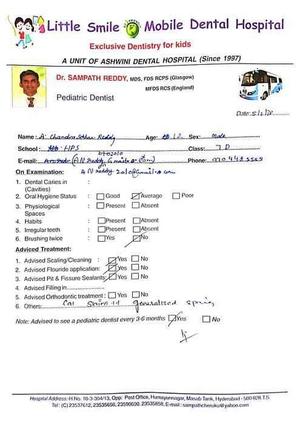 Little Smile Mobile Dental Hospital
Exclusive Dentistry for kids
A UNIT OF ASHWINI DENTAL HOSPITAL (Since 1997)
Dr. SAMPATH REDDY, MDS, FDS RCPS (Glasgow)
MFDS RCS (England)
Pediatric Dentist
Date:
Name: A Chandra Reddy Age: 12 Sex: Male
School: HPS Class: 7 D
E-mail: Phone:
On Examination:
1. Dental Caries in (Cavities)
2. Oral Hygiene Status : Good Average Poor
3. Physiological Spaces : Present Absent
4. Habits : Present Absent
5. Irregular teeth : Present Absent
6. Brushing twice : Yes No
Adviced Treatment:
1. Advised Scaling/Cleaning : Yes No
2. Advised Flouride application: Yes No
3. Advised Pit & Fissure Sealants: Yes No
4. Advised Filling in
5. Advised Orthodontic treatment : Yes No
6. Others: generalised spacing
Note: Advised to see a pediatric dentist every 3-6 months Yes No
Hospital Address: H.No. 10-3-304/13, Opp: Post Office, Humayunnagar, Masab Tank, Hyderabad - 500 028 T.S.